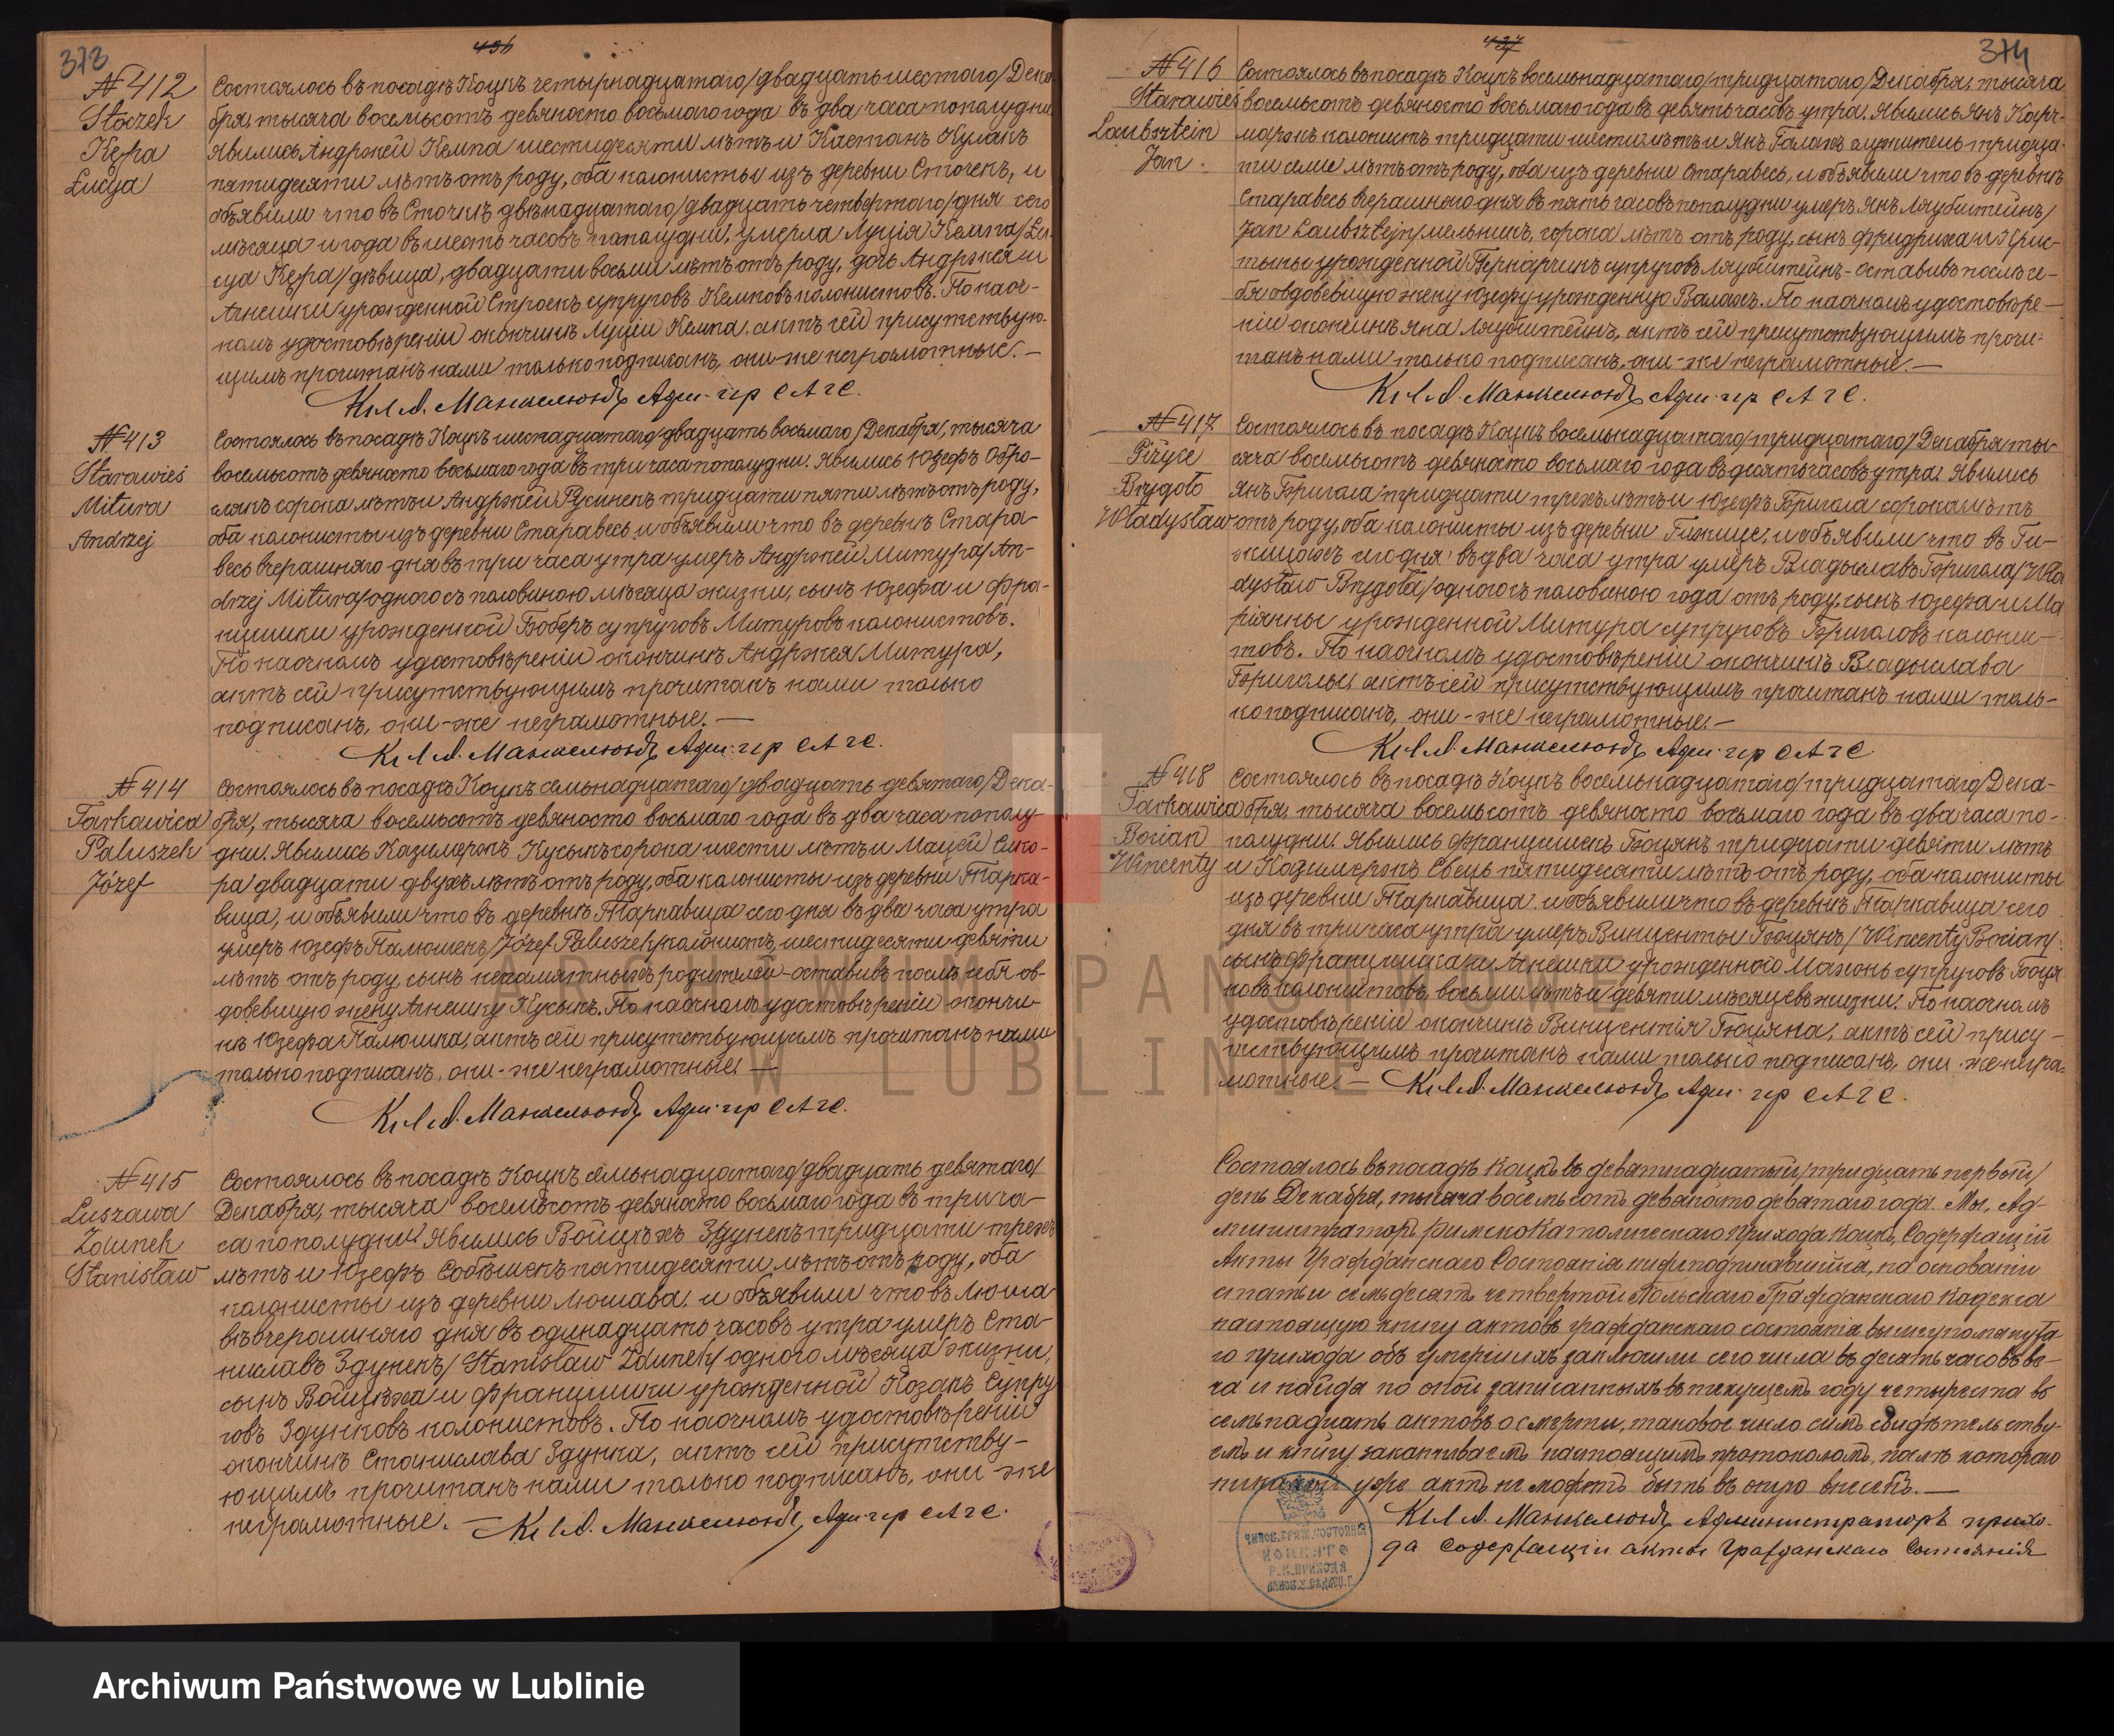 373
436
№ 412
Stoczek
Kępa
Łucya
Состоялось въ посадѣ Коцкъ четырнадцатаго/двадцать шестаго/Дека-
бря, тысяча восемьсотъ девяносто восьмаго года въ два часа пополудни.
Явились Андржей Кемпа шестидесяти лѣтъ и Каетанъ Кулакъ
пятидесяти лѣтъ отъ роду, оба колонисты изъ деревни Сточекъ, и
объявили что въ Сточкѣ двѣнадцатаго/двадцать четвертаго/дня сего
мѣсяца и года въ шесть часовъ пополудни, умерла Луція Кемпа/Łu-
cya Kępa/дѣвица, двадцати восьми лѣтъ отъ роду, дочь Андржея и
Агнешки урожденной Строекъ супруговъ Кемповъ колонистовъ. По наоч-
номъ удостовѣреніи о кончинѣ Луціи Кемпа, актъ сей присутствую-
щимъ прочитанъ нами только подписанъ, они-же неграмотные. —
Кс. А. Манкелюндъ Адм. пр С А Г С.
№ 413
Starawieś
Mitura
Andrzej
Состоялось въ посадѣ Коцкъ шестнадцатаго/двадцать восьмаго/Декабря, тысяча
восемьсотъ девяносто восьмаго года въ три часа пополудни. Явились Юзефъ Обро-
слякъ сорока лѣтъ и Андржей Русинекъ тридцати пяти лѣтъ отъ роду,
оба колонисты изъ деревни Старавесь и объявили что въ деревнѣ Стара-
весь вчерашняго дня въ три часа утра умеръ Андржей Митура/An-
drzej Mitura/одного съ половиною мѣсяца жизни, сынъ Юзефа и Фра-
нцишки урожденной Боберъ супруговъ Митуровъ колонистовъ.
По наочномъ удостовѣреніи о кончинѣ Андржея Митура,
актъ сей присутствующимъ прочитанъ нами только
подписанъ, они-же неграмотные. —
Кс. А. Манкелюндъ Адм. пр С А Г С.
№ 414
Tarkawica
Paluszek
Józef
Состоялось въ посадѣ Коцкъ семьнадцатаго/двадцать девятаго/Дека-
бря, тысяча восемьсотъ девяносто восьмаго года въ два часа пополу-
дни. Явились Казимержъ Кусыкъ сорока шести лѣтъ и Мацей Сико-
ра двадцати двухъ лѣтъ отъ роду, оба колонисты изъ деревни Тарка-
вица, и объявили что въ деревнѣ Таркавица сего дня въ два часа утра
умеръ Юзефъ Палюшекъ/Józef Paluszek/колонистъ, шестидесяти девяти
лѣтъ отъ роду, сынъ непамятныхъ родителей-оставивъ послѣ себя ов-
довевшую жену Агнешку Кусыкъ. По наочномъ удостовѣреніи о кончи-
нѣ Юзефа Палюшка, актъ сей присутствующимъ прочитанъ нами
только подписанъ, они-же неграмотные. —
Кс. А. Манкелюндъ Адм. пр С А Г С.
№ 415
Luszawa
Zdunek
Stanisław
Состоялось въ посадѣ Коцкъ семьнадцатаго/двадцать девятаго/
Декабря, тысяча восемьсотъ девяносто восьмаго года въ три ча-
са пополудни. Явились Войцѣхъ Здунекъ тридцати трехъ
лѣтъ и Юзефъ Собѣшекъ пятидесяти лѣтъ отъ роду, оба
колонисты изъ деревни Люшава, и объявили что въ Люша-
вѣ вчерашняго дня въ одинадцать часовъ утра умеръ Ста-
ниславъ Здунекъ/Stanisław Zdunek/одного мѣсяца жизни,
сынъ Войцѣха и Францишки урожденной Козакъ супру-
говъ Здунковъ колонистовъ. По наочномъ удостовѣреніи
о кончинѣ Станислава Здунка, актъ сей присутству-
ющимъ прочитанъ нами только подписанъ, они-же
неграмотные. — Кс. А. Манкелюндъ Адм. пр С А Г С.
437
374
№ 416
Starawieś
Laubsztein
Jan
Состоялось въ посадѣ Коцкъ восемьнадцатаго/тридцатаго/Декабря, тысяча
восемьсотъ девяносто восьмаго года въ девять часовъ утра. Явились Янъ Карч-
марекъ колонистъ тридцати шести лѣтъ и Янъ Галахъ служитель тридца-
ти семи лѣтъ отъ роду, оба изъ деревни Старавесь, и объявили что въ деревнѣ
Старавесь вчерашняго дня въ пять часовъ пополудни умеръ Янъ Ляубштейнъ/
Jan Laubsztejn/мельникъ, сорока лѣтъ отъ роду, сынъ Фридриха и Крис-
тыны урожденной Бернарчикъ супруговъ Ляубштейнъ-оставивъ послѣ се-
бя овдовевшую жену Юзефу урожденную Валахъ. По наочномъ удостовѣре-
ніи о кончинѣ Яна Ляубштейнъ, актъ сей присутствующимъ прочи-
танъ нами только подписанъ, они-же неграмотные. —
Кс. А. Манкелюндъ Адм. пр С А Г С.
№ 417
Giżyce
Brygoła
Władysław
Состоялось въ посадѣ Коцкъ восемьнадцатаго/тридцатаго/Декабря ты-
сяча восемьсотъ девяносто восьмаго года въ десять часовъ утра. Явились
Янъ Бригола тридцати трехъ лѣтъ и Юзефъ Бригола сорока лѣтъ
отъ роду, оба колонисты изъ деревни Гижице, и объявили что въ Ги-
жицахъ сего дня въ два часа утра умеръ Владыславъ Бригола/Wła-
dysław Brygoła/одного съ половиною года отъ роду, сынъ Юзефа и Ма-
ріянны урожденной Митура супруговъ Бриголовъ колонис-
товъ. По наочномъ удостовѣреніи о кончинѣ Владыслава
Бриголы, актъ сей присутствующимъ прочитанъ нами толь-
ко подписанъ, они-же неграмотные. —
Кс. А. Манкелюндъ Адм. пр С А Г С.
№ 418
Tarkawica
Bocian
Wincenty
Состоялось въ посадѣ Коцкъ восемьнадцатаго/тридцатаго/Дека-
бря, тысяча восемьсотъ девяносто восьмаго года въ два часа по-
полудни. Явились Францишекъ Боцянъ тридцати девяти лѣтъ
и Казимержъ Свець пятидесяти лѣтъ отъ роду, оба колонисты
изъ деревни Таркавица, и объявили что въ деревнѣ Таркавица сего
дня въ три часа утра умеръ Винценты Боцянъ/Wincenty Bocian/
сынъ Францишка и Агнешки урожденной Мазонь супруговъ Боця-
новъ колонистовъ, восьми лѣтъ и девяти мѣсяцевъ жизни. По наочномъ
удостовѣреніи о кончинѣ Винцентія Боцяна, актъ сей прису-
тствующимъ прочитанъ нами только подписанъ, они-же негра-
мотные. — Кс. А. Манкелюндъ Адм. пр С А Г С.
Состоялось въ посадѣ Коцкъ въ девятнадцатый/тридцать первый/
день Декабря, тысяча восемьсотъ девяносто девятаго года. Мы, Ад-
министраторъ Римско Католическаго Прихода Коцкъ, Содержащій
Акты Гражданскаго Состоянія нижеподписавшійся, на основаніи
статьи семьдесятъ четвертой Польскаго Гражданскаго Кодекса
настоящую книгу актовъ гражданскаго состоянія вышеупомянута-
го прихода объ умершихъ заключили сего числа въ десять часовъ ве-
чера и найдя по оной записанныхъ въ текущемъ году четыреста во-
семьнадцать актовъ о смерти, таковое число симъ свидѣтельству-
емъ и книгу заканчиваемъ настоящимъ протоколомъ, послѣ котораго
никакой уже актъ не можетъ быть въ оную внесенъ. —
Кс. А. Манкелюндъ Администраторъ прихо-
да Содержащій акты Гражданскаго Состоянія
ARCHIWUM PAŃSTWOWE
W LUBLINIE
Archiwum Państwowe w Lublinie